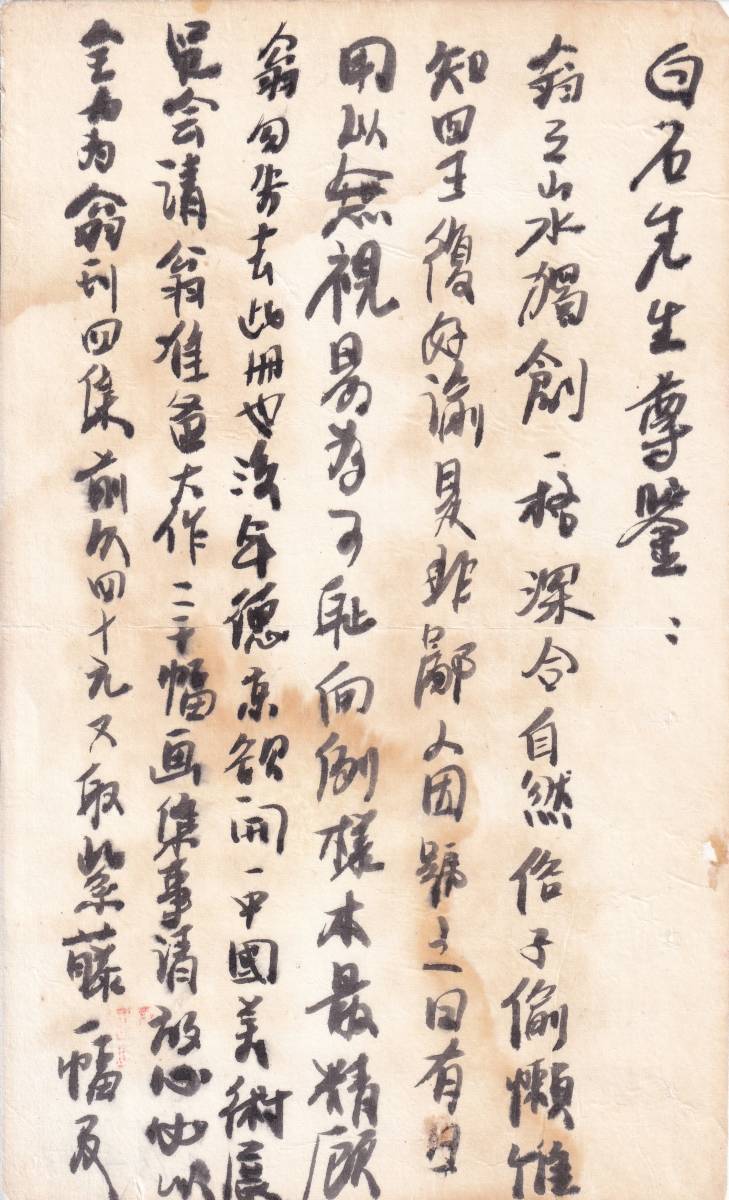 白石先生尊鑒：
翁之山水獨創一格深合自然俗子偷懶惟
知四王復好諭是非鄙人因號之曰有目
用以無視最為可恥向例樣本最精願
翁勿棄去此冊也 年德京 開一中國美術展
覽会请翁准备大作二三十幅画集事请放心 以
全力为翁刊四集前欠四十元又取紫藤一幅及